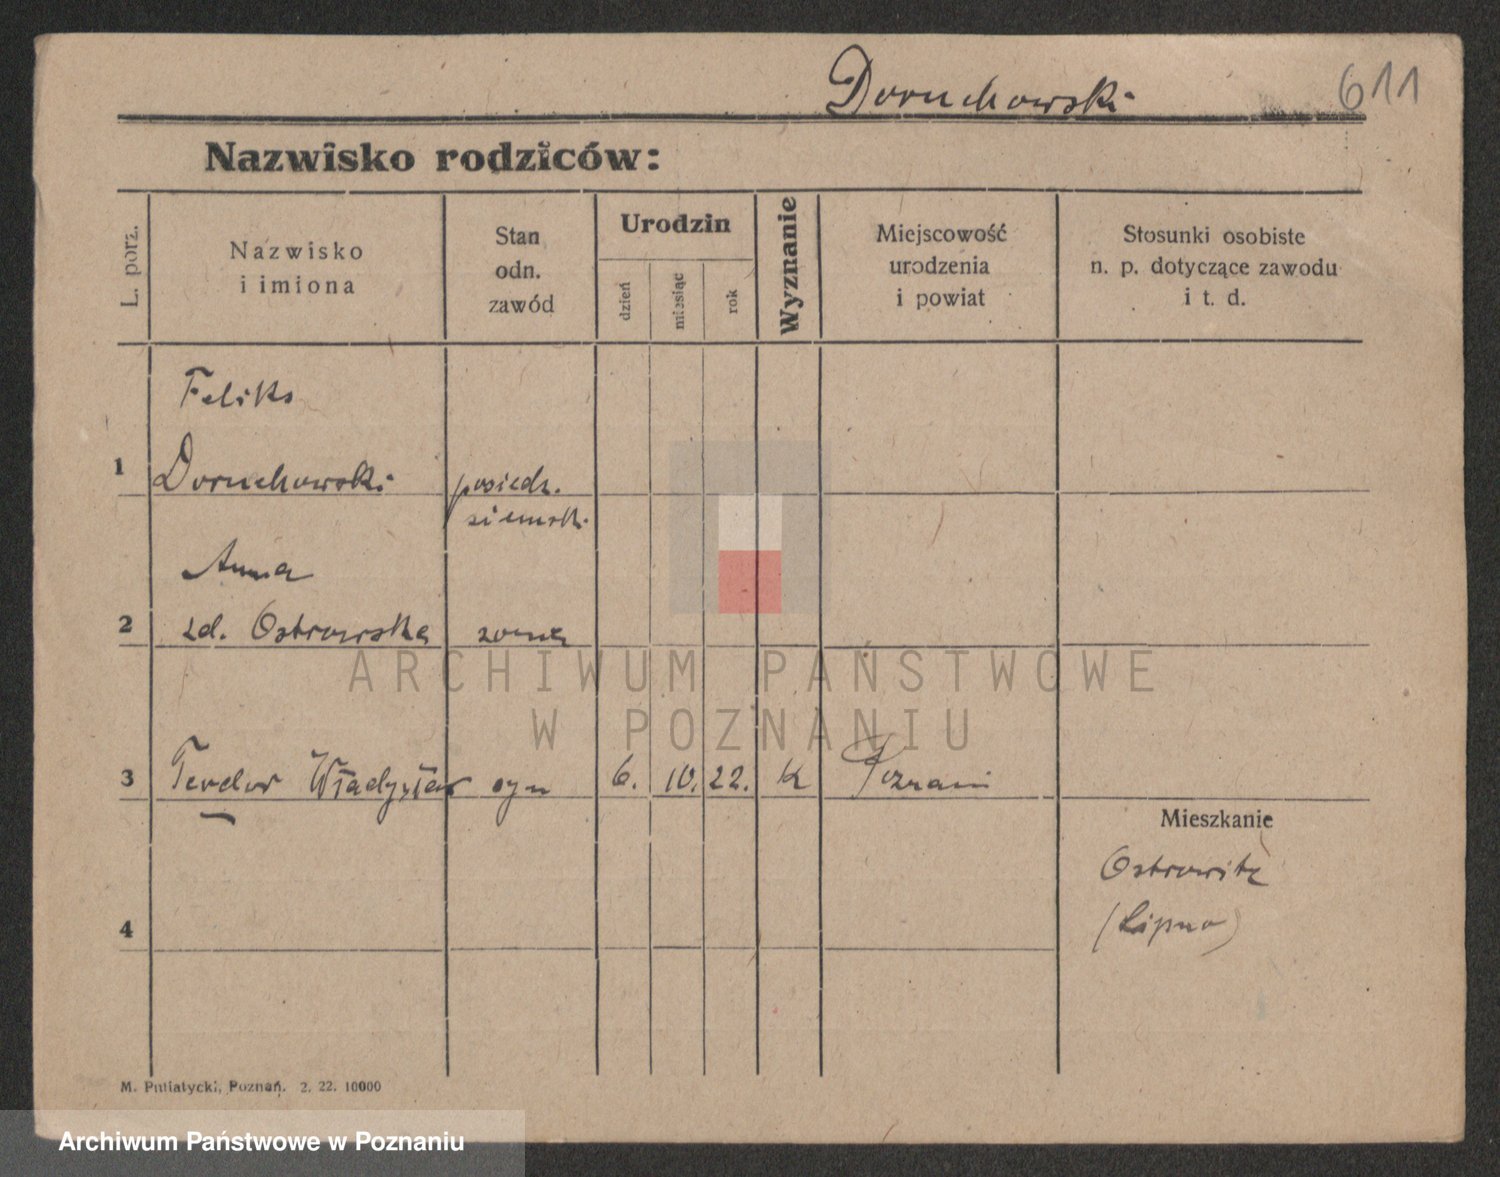 Doruchowski 611
Nazwisko rodziców:
L. porz.
Nazwisko
i imiona
Stan
odn.
zawód
Urodzin
dzień
miesiąc
rok
Wyznanie
Miejscowość
urodzenia
i powiat
Stosunki osobiste
n. p. dotyczące zawodu
i t. d.
Feliks
1 Doruchowski posiedz.
ziemsk.
Anna
2 zd. Ostrowska żona
ARCHIWUM PAŃSTWOWE
W POZNANIU
3 Teodor Władysław syn 6. 10. 22. K Poznań
Mieszkanie
Ostrowite
(Lipno)
4
M. Putiatycki, Poznań. 2. 22. 10000
Archiwum Państwowe w Poznaniu